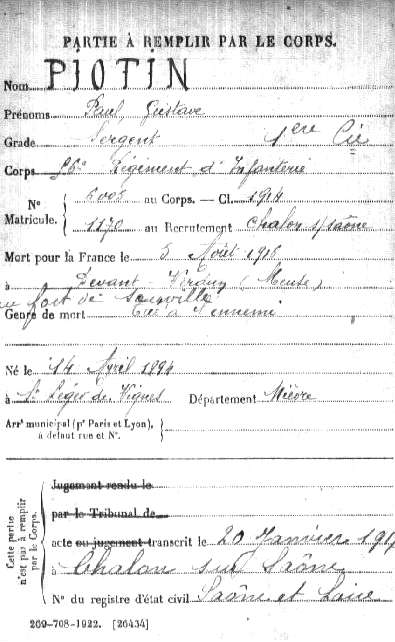 PARTIE À REMPLIR PAR LE CORPS.
Nom PIOTIN
Prénoms Paul, Gustave
Grade Sergent 1ère Cie
Corps 56e Régiment d'Infanterie
N° Matricule. { 6003 au Corps. — Cl. 1914
1170 au Recrutement Chalon s/Saône
Mort pour la France le 5 Août 1916
à Devant-Verdun (Meuse)
au fort de Souville
Genre de mort Tué à l'ennemi
Né le 14 Avril 1894
à St Léger des Vignes Département Nièvre
Arrt municipal (pr Paris et Lyon), à défaut rue et N°. }
Cette partie n'est pas à remplir par le Corps.
Jugement rendu le
par le Tribunal de
acte ou jugement transcrit le 20 Janvier 191
à Chalon sur Saône
N° du registre d'état civil Saône et Loire
209-708-1922. [26434]